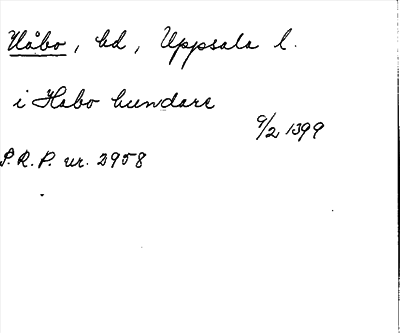 Håbo, hd, Uppsala l.
i Habo hundare
9/2 1399
S.R.P. nr. 2958